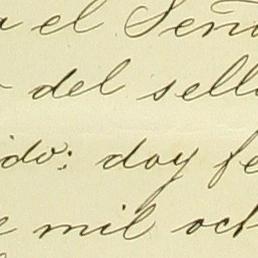 a el Seño
del sello
ido: doy fe
e mil och